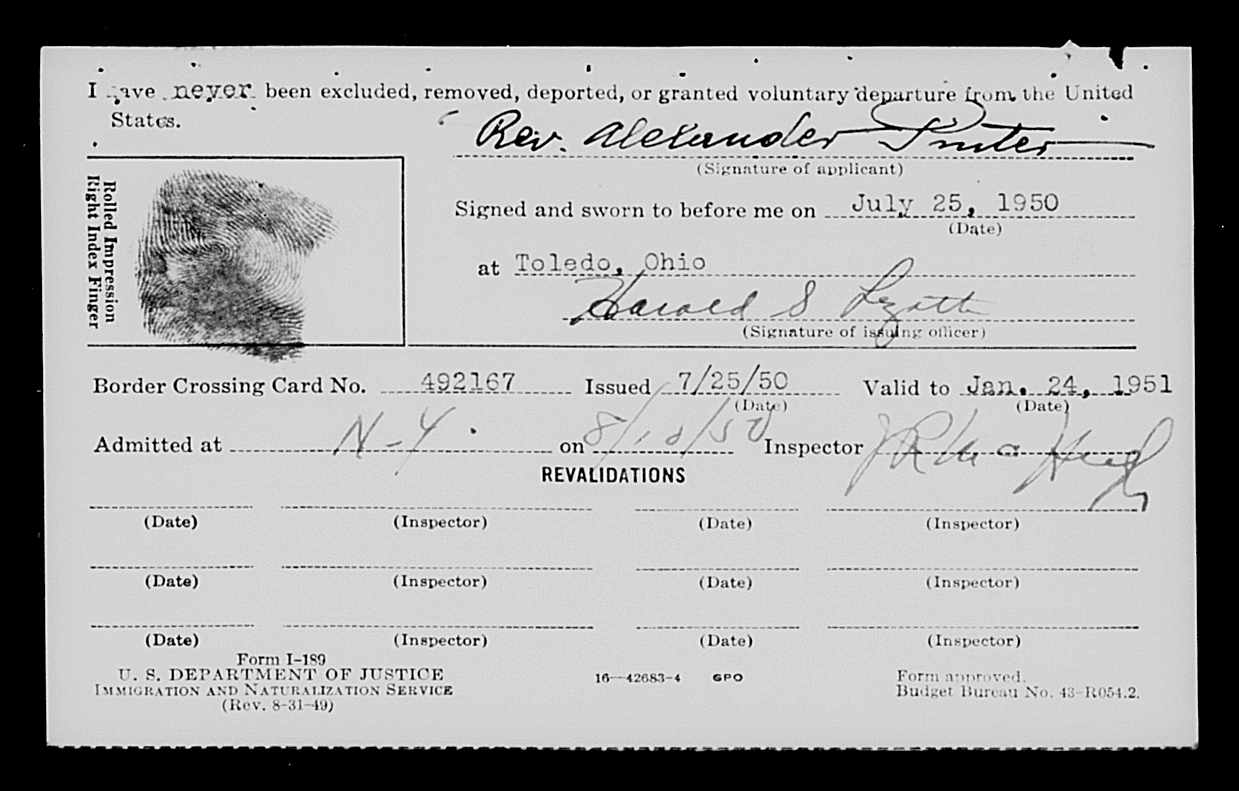 I have never been excluded, removed, deported, or granted voluntary departure from the United
States.
Rev. Alexander Pinter
(Signature of applicant)
Rolled Impression
Right Index Finger
Signed and sworn to before me on July 25, 1950
(Date)
at Toledo, Ohio
Harold S
(Signature of issuing officer)
Border Crossing Card No. 492167 Issued 7/25/50 Valid to Jan. 24, 1951
(Date) (Date)
Admitted at N-Y. on 8/10/50 Inspector
REVALIDATIONS
(Date) (Inspector) (Date) (Inspector)
(Date) (Inspector) (Date) (Inspector)
(Date) (Inspector) (Date) (Inspector)
Form I-189
U. S. DEPARTMENT OF JUSTICE
IMMIGRATION AND NATURALIZATION SERVICE
(Rev. 8-31-49)
16—42683-4 GPO
Form approved.
Budget Bureau No. 43-R054.2.